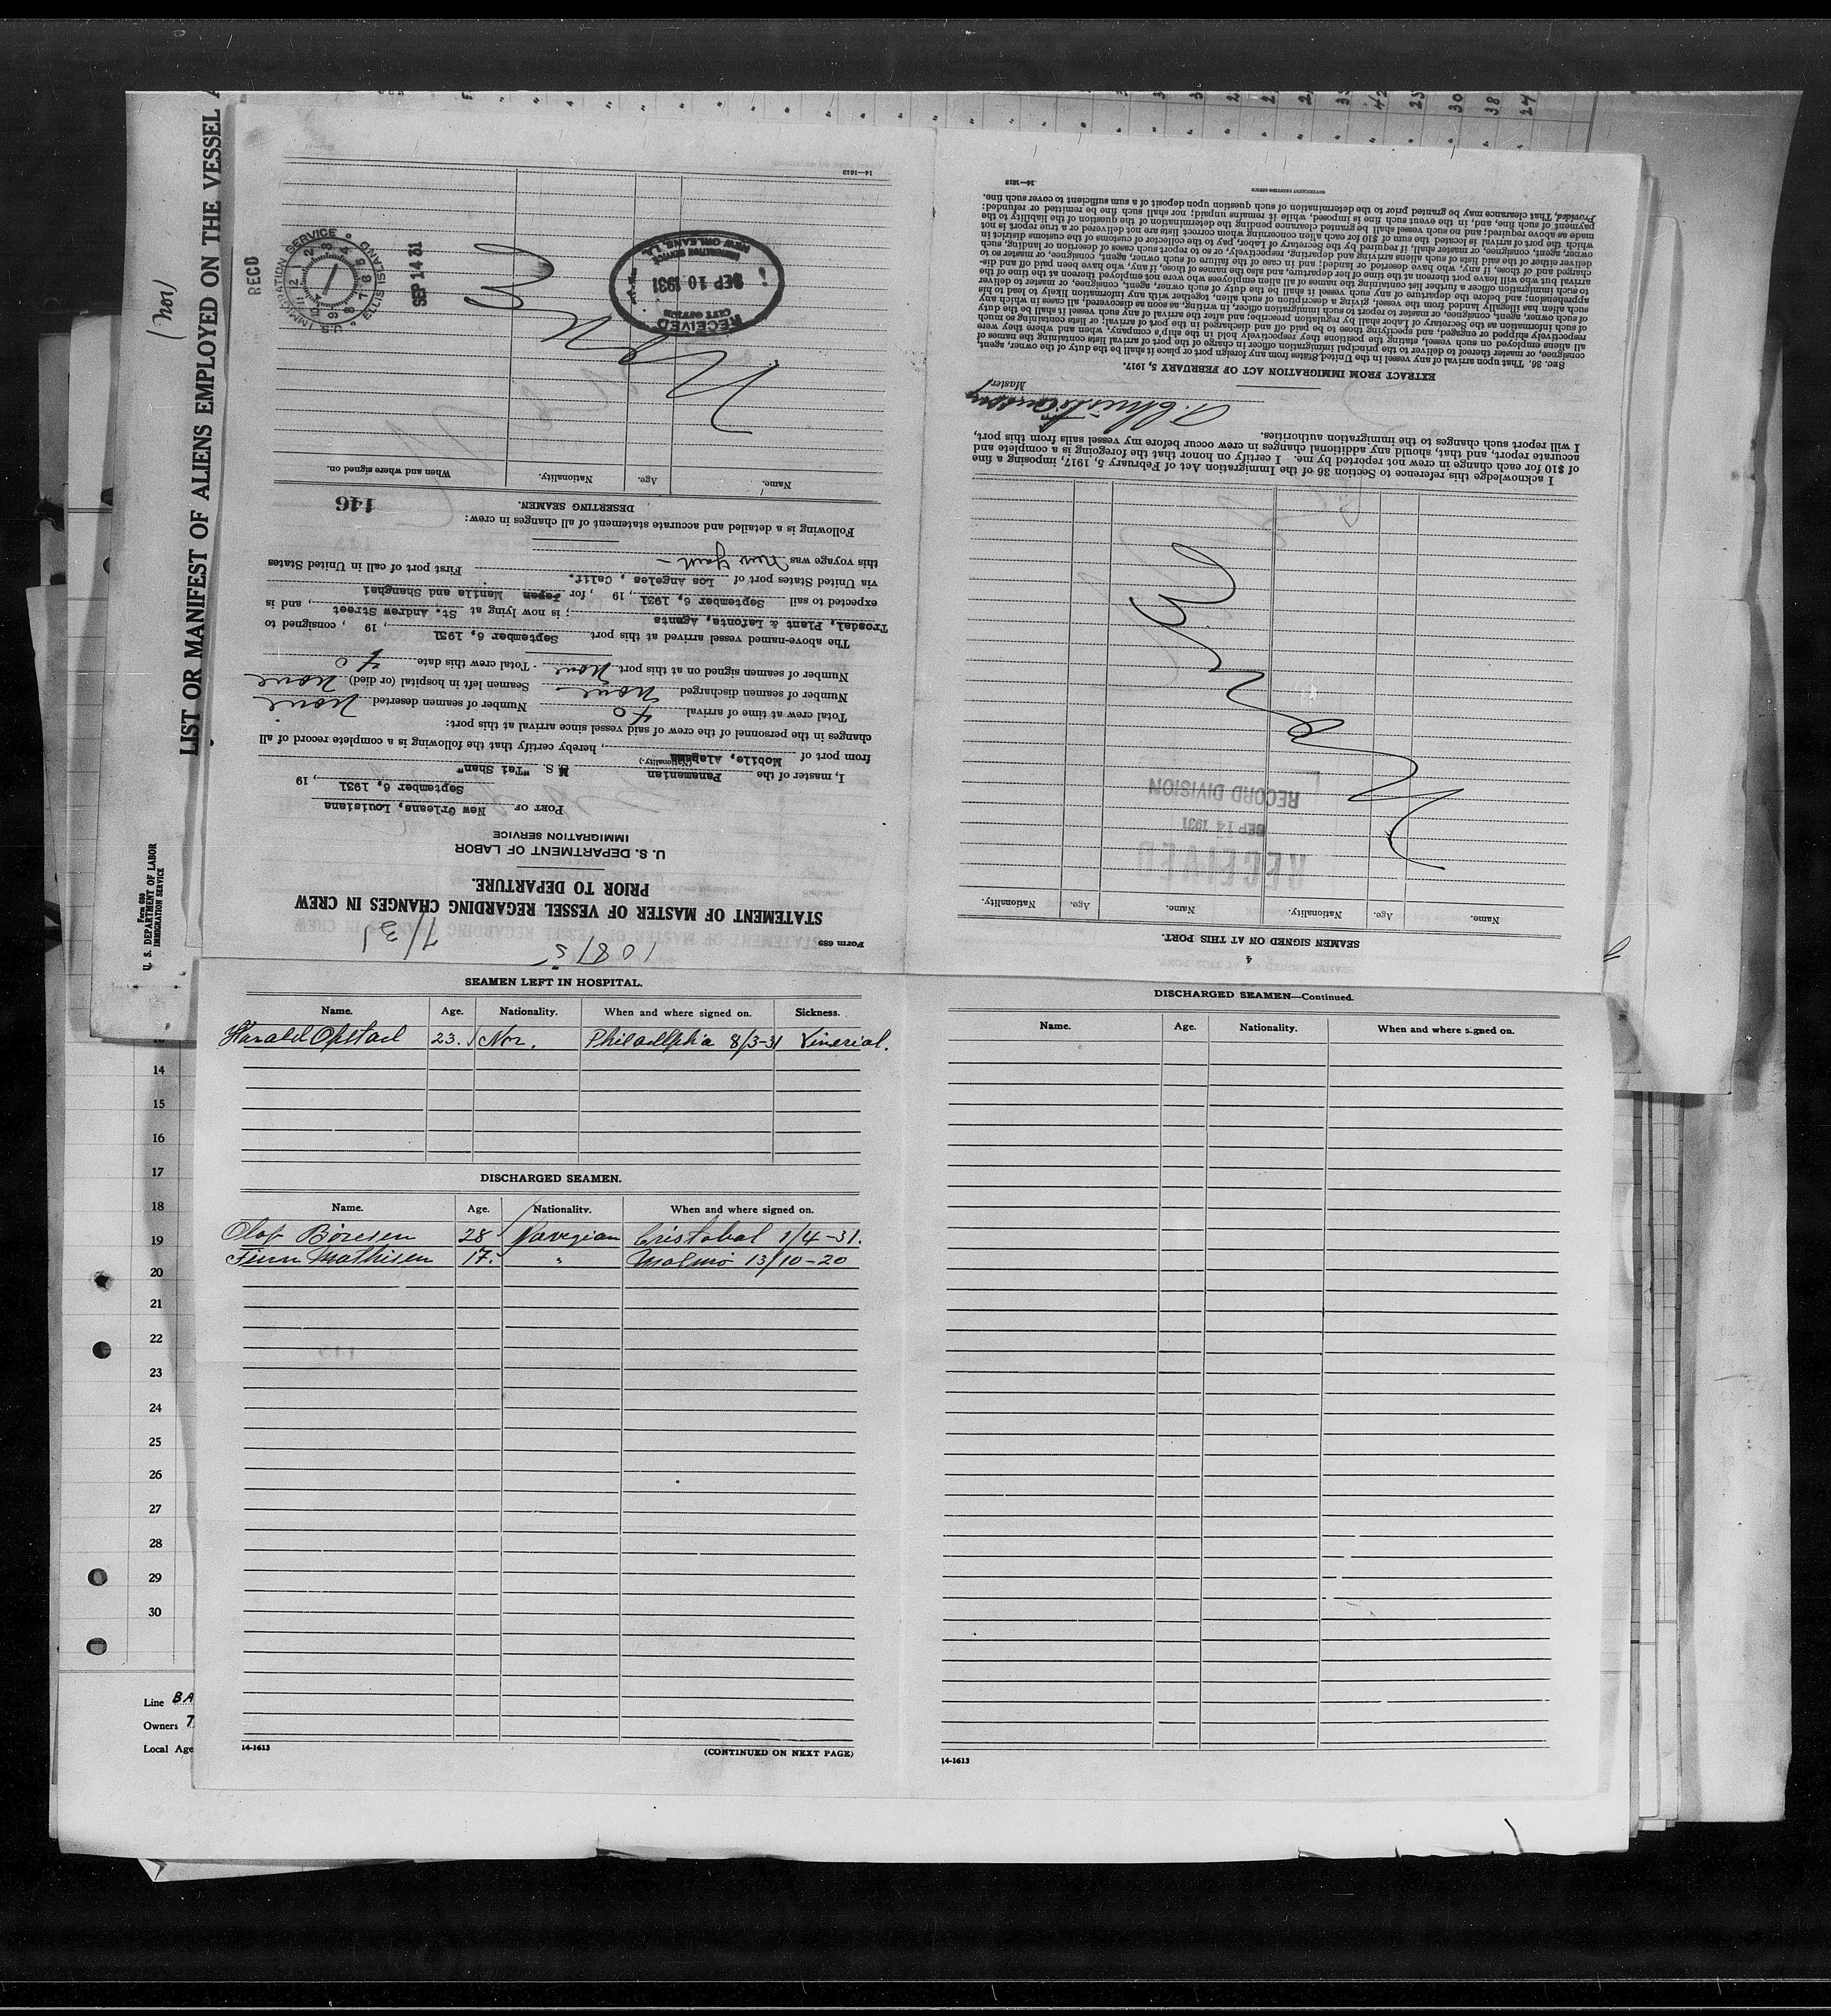 LIST OR MANIFEST OF ALIENS EMPLOYED ON THE VESSEL
Form 680
U. S. DEPARTMENT OF LABOR
IMMIGRATION SERVICE
Form 689
10815
7/31
STATEMENT OF MASTER OF VESSEL REGARDING CHANGES IN CREW
PRIOR TO DEPARTURE.
U. S. DEPARTMENT OF LABOR
IMMIGRATION SERVICE
PORT OF New Orleans, Louisiana
September 6, 1931, 19
I, master of the Panamanian M S. "Tai Shan"
(Nationality.)
from port of Mobile, Alabama, hereby certify that the following is a complete record of all
changes in the personnel of the crew of said vessel since arrival at this port:
Total crew at time of arrival 40 Number of seamen deserted None
Number of seamen discharged None Seamen left in hospital (or died) None
Number of seamen signed on at this port None. Total crew this date 40
The above-named vessel arrived at this port September 6, 1931, 19 , consigned to
Trosdal, Plant & Lafonta, Agents; is now lying at St. Andrew Street, and is
expected to sail September 6, 1931, 19 , for Japan Manila and Shanghai
via United States port of Los Angeles, Calif. First port of call in United States
this voyage was New York
Following is a detailed and accurate statement of all changes in crew:
146
DESERTING SEAMEN.
Name. Age. Nationality. When and where signed on.
RECEIVED
CITY OFFICE
SEP 10 1931
IMMIGRATION SERVICE
NEW ORLEANS, LA.
RECD
U.S. IMMIGRATION SERVICE ELLIS ISLAND
SEP 14 31
14—1613
4
SEAMEN SIGNED ON AT THIS PORT.
Name. Age. Nationality. Name. Age. Nationality.
RECEIVED
SEP 14 1931
RECORD DIVISION
I acknowledge this reference to Section 36 of the Immigration Act of February 5, 1917, imposing a fine
of $10 for each change in crew not reported by me. I certify on honor that the foregoing is a complete and
accurate report, and that, should any additional changes in crew occur before my vessel sails from this port,
I will report such changes to the immigration authorities.
Master
EXTRACT FROM IMMIGRATION ACT OF FEBRUARY 5, 1917.
SEC. 36. That upon arrival of any vessel in the United States from any foreign port or place it shall be the duty of the owner, agent,
consignee, or master thereof to deliver to the principal immigration officer in charge of the port of arrival lists containing the names of
all aliens employed on such vessel, stating the positions they respectively hold in the ship's company, when and where they were
respectively shipped or engaged, and specifying those to be paid off and discharged in the port of arrival; or lists containing so much
of such information as the Secretary of Labor shall by regulation prescribe; and after the arrival of any such vessel it shall be the duty
of such owner, agent, consignee, or master to report to such immigration officer, in writing, as soon as discovered, all cases in which any
such alien has illegally landed from the vessel, giving a description of such alien, together with any information likely to lead to his
apprehension; and before the departure of any such vessel it shall be the duty of such owner, agent, consignee, or master to deliver
to such immigration officer a further list containing the names of all alien employees who were not employed thereon at the time of the
arrival but who will leave port thereon at the time of her departure, and also the names of those, if any, who have been paid off and dis-
charged and of those, if any, who have deserted or landed; and in case of the failure of such owner, agent, consignee, or master so to
deliver either of the said lists of such aliens arriving and departing, respectively, or so to report such cases of desertion or landing, such
owner, agent, consignee, or master shall, if required by the Secretary of Labor, pay to the collector of customs of the customs district in
which the port of arrival is located the sum of $10 for each alien concerning whom correct lists are not delivered or a true report is not
made as above required; and no such vessel shall be granted clearance pending the determination of the question of the liability to the
payment of such fine, and, in the event such fine is imposed, while it remains unpaid; nor shall such fine be remitted or refunded:
Provided, That clearance may be granted prior to the determination of such question upon deposit of a sum sufficient to cover such fine.
14—1613
GOVERNMENT PRINTING OFFICE
SEAMEN LEFT IN HOSPITAL.
Name. Age. Nationality. When and where signed on. Sickness.
Harald Opstad 23. Nor. Philadlphia 8/3-31 Vinerial.
DISCHARGED SEAMEN.
Name. Age. Nationality. When and where signed on.
OlafBöresen 28 Norvegian Cristobal 1/4-31.
Finn Mathisen 17. " Malmö 13/10-20
14-1613
(CONTINUED ON NEXT PAGE)
DISCHARGED SEAMEN—Continued.
Name. Age. Nationality. When and where signed on.
14-1613
14
15
16
17
18
19
20
21
22
23
24
25
26
27
28
29
30
Line BA
Owners T
Local Age